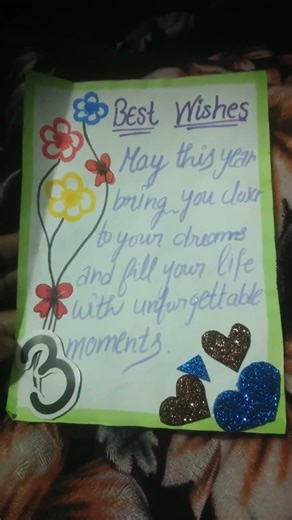 Best Wishes
May this year
bring you closer
to your dreams
and fill your life
with unforgettable
moments.
3